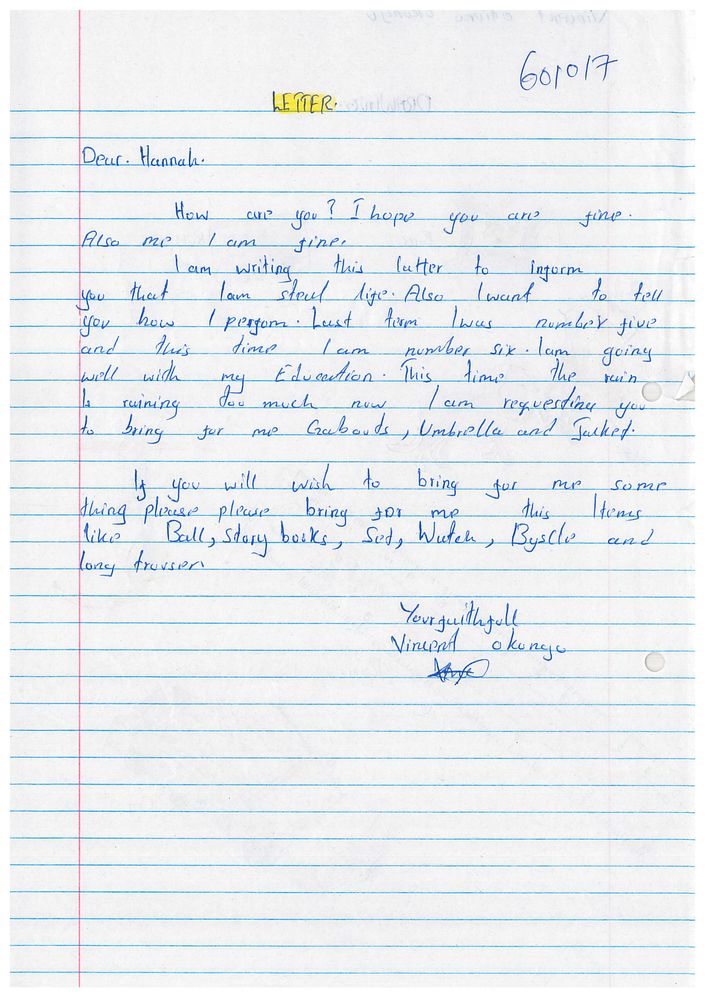 601017
LETTER.
Dear. Hannah.
How are you? I hope you are fine.
Also me I am fine.
I am writing this latter to inform
you that I am steal life. Also I want to tell
you how I perfom. Last term I was number five
and this time I am number six. I am going
well with my Education. This time the rain
Is raining too much now I am requesting you
to bring for me Gabouds, Umbrella and Jacket.
If you will wish to bring for me some
thing please please bring for me this Items
like Ball, story books, Set, Watch, Byscle and
long trouser.
Your faithfull
Vincent okongo